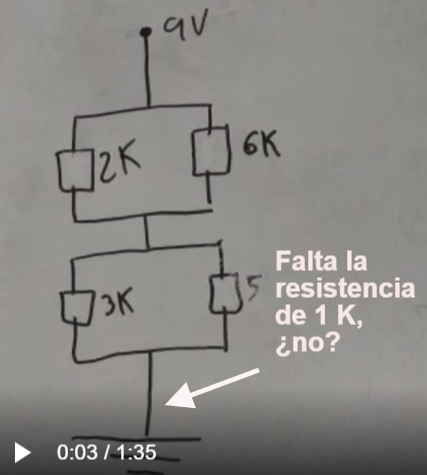 9V
2K
6K
3K
5
Falta la
resistencia
de 1 K,
¿no?
0:03 / 1:35